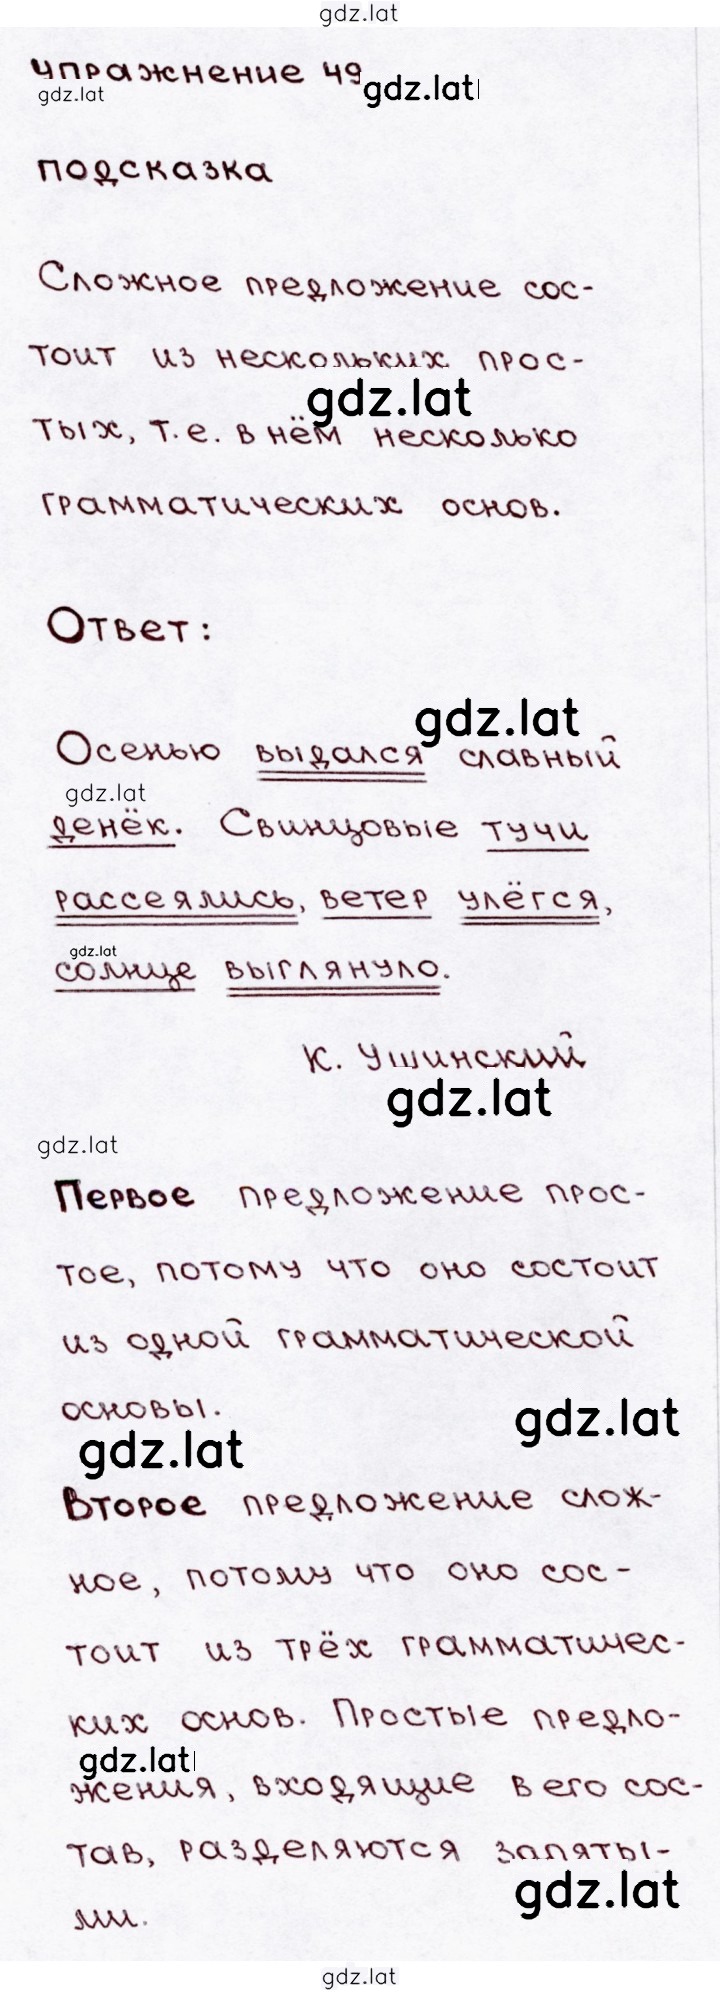 gdz.lat
упражнение 49
gdz.lat
gdz.lat
подсказка
Сложное предложение сос-
тоит из нескольких прос-
gdz.lat
тых, т.е. в нём несколько
грамматических основ.
Ответ:
gdz.lat
Осенью выдался славный
gdz.lat
денёк. Свинцовые тучи
рассеялись, ветер улёгся,
gdz.lat
солнце выглянуло.
К. Ушинский
gdz.lat
gdz.lat
Первое предложение прос-
тое, потому что оно состоит
из одной грамматической
основы.
gdz.lat
gdz.lat
Второе предложение слож-
ное, потому что оно сос-
тоит из трёх грамматичес-
ких основ. Простые предло-
gdz.lat
жения, входящие в его сос-
тав, разделяются запяты-
gdz.lat
ми.
gdz.lat